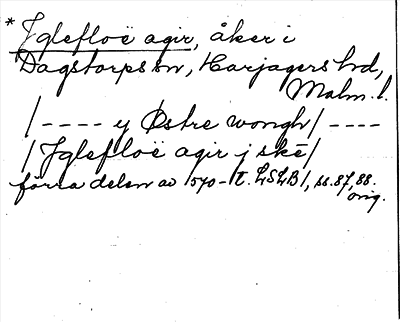 * Iglefloë agir, åker i
Dagstorps sn, Harjagers hd,
Malm. l.
/---- y Østre wongh/ ----
/Iglefloë agir j skē/
förra delen av 1540-t. LSLB 1, ss. 87, 88.
orig.